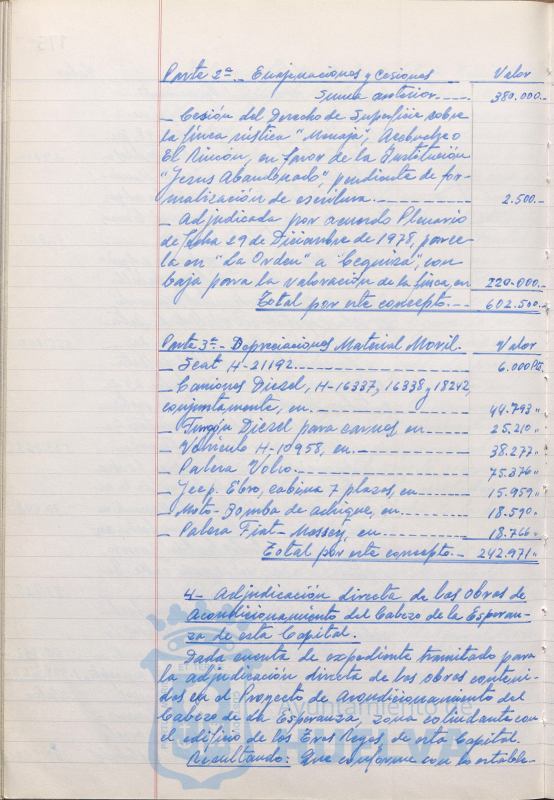 Parte 2ª.- Enajenaciones y Cesiones Valor
Suma anterior.---- 380.000.-
- Cesión del Derecho de Superficie sobre
la finca rústica "Monaja", Acebuche o
El Rincón, en favor de la Institución
"Jesus Abandonado", pendiente de for-
malización de escritura.------------- 2.500.-
- Adjudicada por acuerdo Plenario
de fecha 29 de Diciembre de 1978, parce-
la en "La Orden" a con
baja para la valoración de la finca, en 220.000.-
Total por este concepto.-- 602.500.-
Parte 3ª.- Depreciaciones Material Movil. Valor
- Seat H-21192.------------------- 6.000 Pts.
- Camiones Diesel, H-16337, 16338 y 18242,
conjuntamente, en.---------------- 44.793"
- Furgón Diesel para carnes, en-------- 25.210"
- Vehículo H-10958, en.------------- 38.277"
- Palera Volvo.------------------- 75.376"
- Jeep. Ebro, cabina 7 plazas, en------- 15.959"
- Moto-Bomba de achique, en.--------- 18.590"
- Palera Fiat-Mossey, en------------ 18.766"
Total por este concepto.- 242.971"
4- Adjudicación directa de las obras de
Acondicionamiento del Cabezo de la Esperan-
za de esta Capital.
Dada cuenta de expediente tramitado para
la adjudicación directa de las obras conteni-
das en el Proyecto de Acondicionamiento del
Cabezo de la Esperanza, zona colindante con
el edificio de los Eros Reyes de esta Capital.
Resultando: Que conforme con lo estable-
Ayuntamiento de
HUELVA